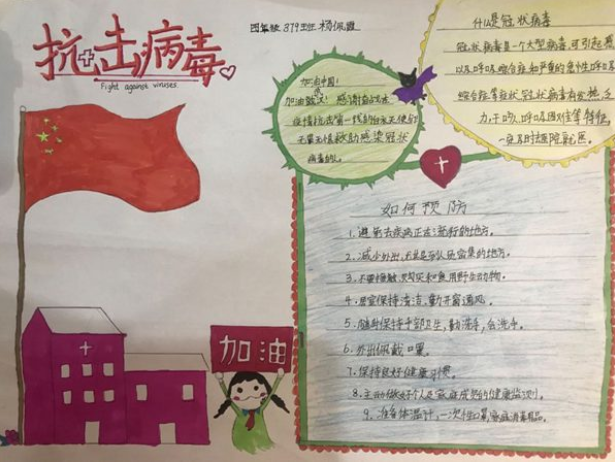 抗击病毒
Fight against viruses
四年级 379班 杨佩
什么是冠状病毒
冠状病毒是一个大型病毒,可引起感
以及呼吸综合征和严重的急性呼吸
综合征等症状,冠状病毒有发热、乏
力、干咳、呼吸困难等特征,
一定及时去医院就医。
加油中国!
加油武汉!感谢奋战在
疫情抗击第一线的白衣天使们
救助感染冠状
病毒的人。
如何预防
1.避免去疾病正在流行的地方。
2.减少外出,尤其是人员密集的地方。
3.不要接触、购买和食用野生动物。
4.居室保持清洁,勤开窗通风。
5.随时保持手部卫生,勤洗手,会洗手。
6.外出佩戴口罩。
7.保持良好健康习惯。
8.主动做好个人及家庭成员的健康监测。
9.准备体温计,一次性口罩,家庭消毒用品。
加油